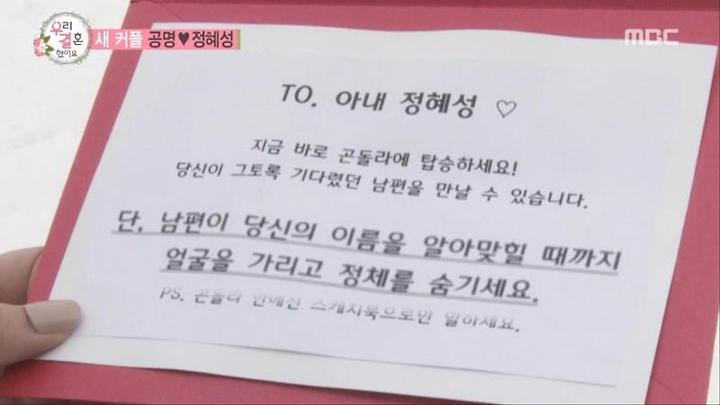 우리
결혼
했어요
새 커플 공명♥정혜성
MBC
TO. 아내 정혜성 ♡
지금 바로 곤돌라에 탑승하세요!
당신이 그토록 기다렸던 남편을 만날 수 있습니다.
단, 남편이 당신의 이름을 알아맞힐 때까지
얼굴을 가리고 정체를 숨기세요.
PS. 곤돌라 안에선 스케치북으로만 말하세요.